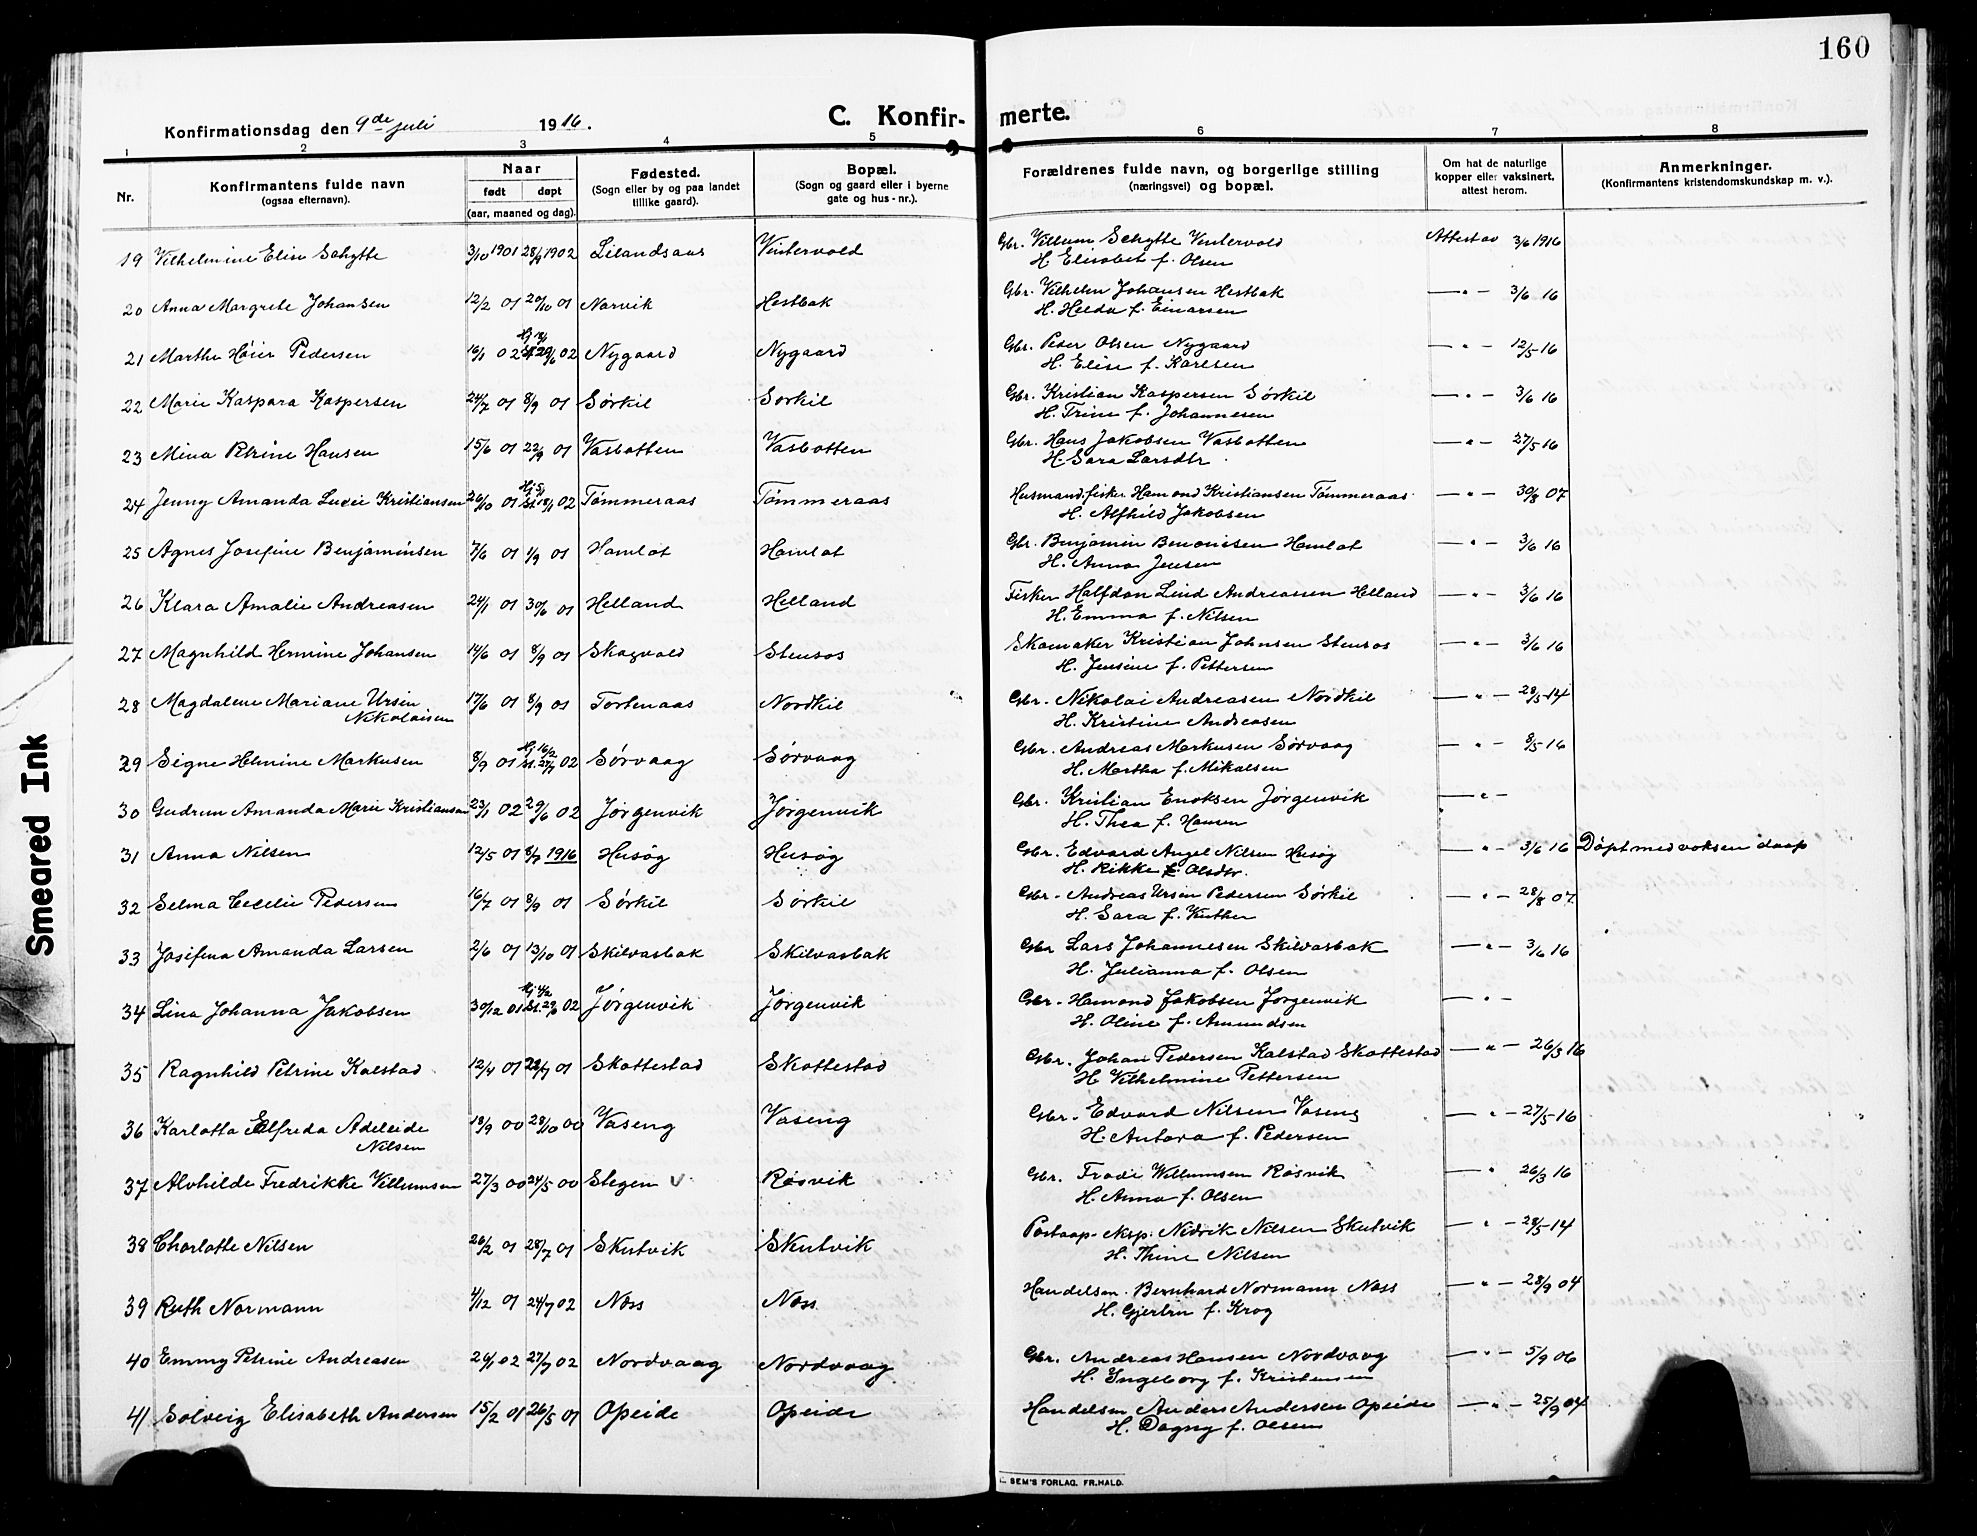 160
Konfirmationsdag den 9de juli 1916.
C. Konfir-
merte.
1 2 3 4 5 6 7 8
Nr.
Konfirmantens fulde navn
(ogsaa efternavn).
Naar
født døpt
(aar, maaned og dag).
Fødested.
(Sogn eller by og paa landet
tillike gaard).
Bopæl.
(Sogn og gaard eller i byerne
gate og hus-nr.).
Forældrenes fulde navn, og borgerlige stilling
(næringsvei) og bopæl.
Om hat de naturlige
kopper eller vaksinert,
attest herom.
Anmerkninger.
(Konfirmantens kristendomskundskap m. v.).
19 Vilhelmine Elise Schytte 3/10 1901 28/9 1902 Lilandsaas Vintervold Gbr. Villum Schytte Vintervold Attest av 3/6 1916
H. Elisabet f. Olsen
20 Anna Margrete Johansen 12/2 01 20/10 01 Narvik Hestbak Gbr. Vilhelm Johansen Hestbak — " — 3/6 16
H. Helda f. Einarsen
21 Martha Høier Pedersen 16/1 02 29/6 02 Nygaard Nygaard Gbr. Peder Olsen Nygaard — " — 12/5 16
H. Elise f. Karlsen
22 Marie Kaspara Kaspersen 24/7 01 8/9 01 Sørkil Sørkil Gbr. Kristian Kaspersen Sørkil — " — 3/6 16
H. Trine f. Johannesen
23 Mina Petrine Hansen 15/6 01 22/9 01 Vasbotten Vasbotten Gbr. Hans Jakobsen Vasbotten — " — 27/5 16
H. Sara Larsdtr.
24 Jenny Amanda Lucie Kristiansen 26/10 01 Tømmeraas Tømmeraas Husmand, fisker Hamond Kristiansen Tømmeraas — " — 30/8 07
H. Alfhild Jakobsen
25 Agnes Josefine Benjaminsen 7/6 01 1/9 01 Hamlot Hamlot Gbr. Benjamin Benonisen Hamlot — " — 3/6 16
H. Anna Jensen
26 Klara Amalie Andreasen 24/1 01 30/6 01 Helland Helland Fisker Halfdan Lind Andreassen Helland — " — 3/6 16
H. Emma f. Nilsen
27 Magnhild Hermine Johansen 14/6 01 8/9 01 Skogvold Stensos Skomaker Kristian Johnsen Stensos — " — 3/6 16
H. Jensine f. Pettersen
28 Magdalene Mariane Ursin 17/6 01 8/9 01 Tortenaas Nordkil Gbr. Nikolai Andreasen Nordkil — " — 28/5-14
Nikolaisen H. Kristine Andreasen
29 Signe Helmine Markusen 8/9 01 Hj 16/2 st. 27/7 02 Sørvaag Sørvaag Gbr. Andreas Markusen Sørvaag — " — 8/5 16
H. Martha f. Mikalsen
30 Gudrun Amanda Marie Kristiansen 23/1 02 29/6 02 Jørgenvik Jørgenvik Gbr. Kristian Enoksen Jørgenvik — " —
H. Thea f. Hansen
31 Anna Nilsen 12/5 01 8/7 1916 Husøg Husøg Gbr. Edvard Angel Nilsen Husøg — " — 3/6 16 Døpt med voksen daap
H. Rikke f. Olsdtr.
32 Selma Cecelie Pedersen 16/7 01 8/9 01 Sørkil Sørkil Gbr. Andreas Ursin Pedersen Sørkil — " — 28/8 07
H. Sara f.
33 Josefina Amanda Larsen 2/6 01 13/10 01 Skilvasbak Skilvasbak Gbr. Lars Johannesen Skilvasbak — " — 3/6 16
H. Julianna f. Olsen
34 Lina Johanna Jakobsen 30/12 01 Hj 4/2 st. 29/6 02 Jørgenvik Jørgenvik Gbr. Hamond Jakobsen Jørgenvik — " —
H. Oline f. Amundsen
35 Ragnhild Petrine Kalstad 12/4 01 01 Skottestad Skottestad Gbr. Johan Pedersen Kalstad Skottestad — " — 26/3 16
H. Vilhelmine Pettersen
36 Karlotta Elfreda Adeleide 18/9 00 28/10 00 Vaseng Vaseng Gbr. Edvard Nilsen Vaseng — " — 27/5-16
Nilsen H. Antora f. Pedersen
37 Alvhilde Fredrikke Villumsen 27/3 00 24/5 00 Stegen v Røsvik Gbr. Frodi Willumsen Røsvik — " 26/3 16
H. Anna f. Olsen
38 Charlotte Nilsen 26/2 01 28/7 01 Skutvik Skutvik Postaap. eksp. Nedrik Nilsen Skutvik — " — 28/5-14
H. Thine Nilsen
39 Ruth Normann 4/12 01 24/7 02 Næss Næss Handelsm. Bernhard Normann Næss — " — 28/9 04
H. Gjertru f. Krog
40 Emmy Petrine Andreasen 26/1 02 27/7 02 Nordvaag Nordvaag Gbr. Andreas Hansen Nordvaag — " — 5/9 06
H. Ingeborg f. Kristensen
41 Solveig Elisabeth Andersen 15/2 01 26/5 01 Opeide Opeide Handelsm Anders Andersen Opeide — " — 25/9 04
H. Dagny f. Olsen
SEM'S FORLAG, FR.HALD.
Smeared Ink